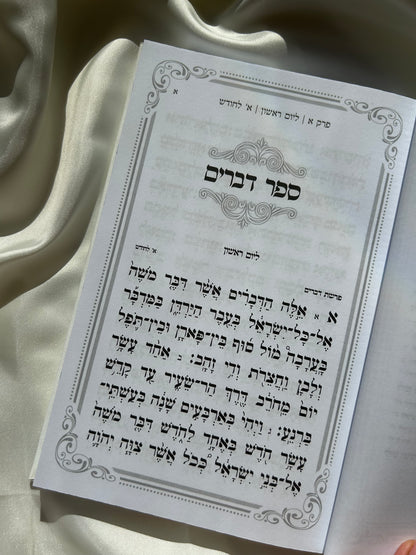 א
פרק א | ליום ראשון | א' לחודש
ספר דברים
ליום ראשון
א' לחודש
פרשת דברים
א א אֵלֶּה הַדְּבָרִים אֲשֶׁר דִּבֶּר מֹשֶׁה
אֶל־כׇּל־יִשְׂרָאֵל בְּעֵבֶר הַיַּרְדֵּן בַּמִּדְבָּר
בָּעֲרָבָה מוֹל סוּף בֵּין־פָּארָן וּבֵין־תֹּפֶל
וְלָבָן וַחֲצֵרֹת וְדִי זָהָב׃ ב אַחַד עָשָׂר
יוֹם מֵחֹרֵב דֶּרֶךְ הַר־שֵׂעִיר עַד קָדֵשׁ
בַּרְנֵעַ׃ ג וַיְהִי בְּאַרְבָּעִים שָׁנָה בְּעַשְׁתֵּי־
עָשָׂר חֹדֶשׁ בְּאֶחָד לַחֹדֶשׁ דִּבֶּר מֹשֶׁה
אֶל־בְּנֵי יִשְׂרָאֵל כְּכֹל אֲשֶׁר צִוָּה יְהֹוָה